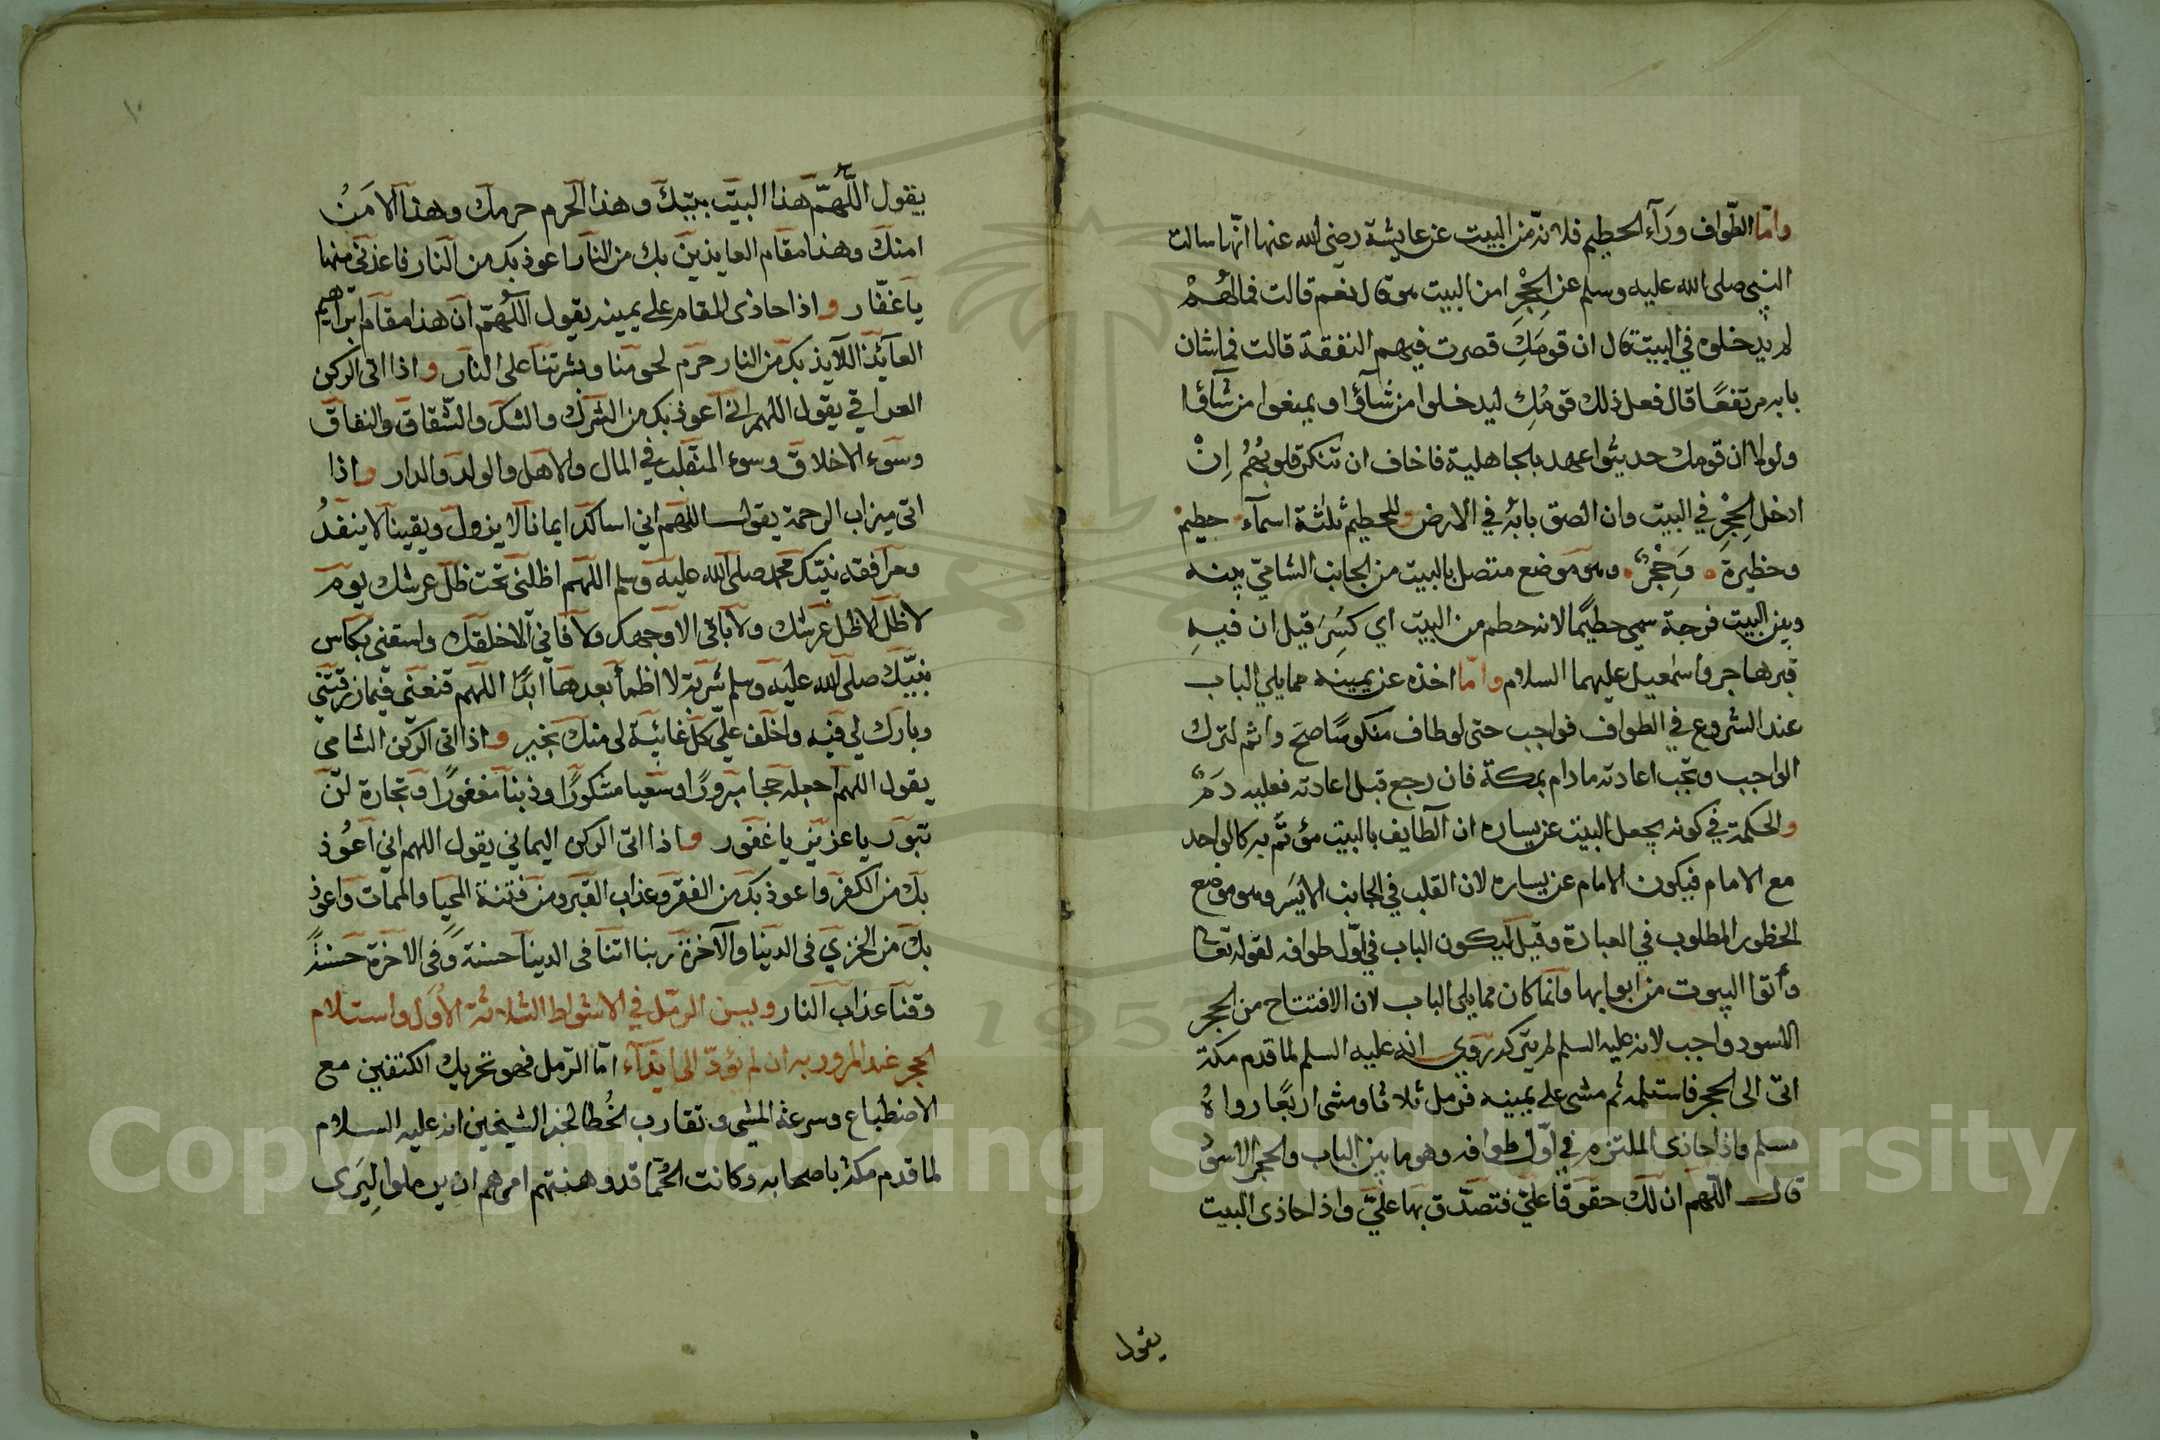 وامّا الطّواف وَرَآء الحطيم فلانه من البيت عن عايشة رضي الله عنها انّها سالت
النبي صلى الله عليه وسلم عن الحِجْرِ امن البيت هو قال نعم قالت فما لهُمْ
لم يدخلوه في البيت قال ان قومَكِ قصرت فيهم النفقة قالت فما شان
بابه مرتفعًا قال فعل ذلك قومُكِ ليدخلوا من شآؤا ويمنعوا من شآؤا
ولولا ان قومك حديثوا عهد بالجاهلية فاخاف ان تنكر قلوبُهُمُ اِنْ
ادخل الحِجْرِ في البيت وان الصق بابهُ في الارض للحطيم ثلثة اسمآء حطيم
وحظيرة وَحِجْرٌ وهو موضع متصل بالبيت من الجانب الشاميّ بينه
وبين البيت فرجة سمي حطيمًا لانه حطم من البيت اي كسِرَ قيل ان فيهِ
قبر هاجر واسمعيل عليهما السلام وامّا اخذه عن يمينه مما يلي الباب
عند الشروع في الطواف فواجب حتى لو طاف منكوسًا صحَ واثم لترك
الواجب وتجب اعادته مادام بمكة فان رجع قبل اعادته فعليه دَمٌ
والحكمة في كونه يجعل البيت عن يساره ان الطايف بالبيت مؤتمّ به كالواحد
مع الامام فيكون الامام عن يساره لان القلب في الجانب الايسَر وهو موضع
الحظور المطلوب في العبادة وقيل ليكون الباب في اوّل طوافه لقوله تعا
وأتوا البيوت من ابوابها وانما كان مما يلي الباب لان الافتتاح من الحجر
الاسود واجب لانه عليه السلم لم يتركه رُوِي انه عليه السلم لما قدم مكة
اتى الى الحجر فاستلمه ثم مشى على يمينه فرمل ثلاثا ومشى اربعًا رواهُ
مسلم واذا حاذى الملتزم في اوّل طوافه وهو ما بين الباب والحجر الاسود
قال اللّهم ان لك حقوقا عليّ فتصدّق بها عليّ واذا حاذى البيت
يقول
١٠
يقول اللّهُمّ هذا البيت بيتك وهذا الحرم حرمك وهذا الامَنُ
امنك وهذا مقام العايذين بك من النار اعوذ بك من النار فاعذني منها
يا غفّار واذا حاذى المقام على يمينه يقول اللّهُمّ ان هذا مقام ابراهيم
العآئذ اللآيذ بك من النار حرّم لحومنا وبشرتنا على النار واذا اتى الركن
العراقي يقول اللهم اني اعوذ بك من الشرك والشك والشّقاق والنفاق
وسوء الاخلاق وسوء المنقلب في المال والاهل والولد والدار واذا
اتى ميزاب الرحمة يقول اللهم اني اسالك ايمانا لا يزول ويقينا لا ينفدُ
ومرافقة نبيّك محمد صلى الله عليه وسلم اللهم اظلني تحت ظلّ عرشك يوم
لا ظلّ الا ظل عرشك ولا باقي الا وجهك ولا فاني الا خلقك واسقني بكاس
نبيّك صلى الله عليه وسلم شربة لا اظمأ بعدها ابدًا اللهم قنعني فيما رزقتني
وبارك لي فيه واخلف عليّ كلّ غائبة لي منك بخير واذا اتى الركن الشامي
يقول اللهم اجعله حجا مبرورًا وسعيا مشكورًا وذنبًا مغفورًا وتجارة لنْ
تبور يا عزيز يا غفور واذا اتى الركن اليماني يقول اللهم اني اعُوذ
بك من الكفر واعوذ بك من الفقر وعذاب القبر ومن فتنة المحيا والممات واعوذ
بك من الخزي في الدنيا والآخرة ربنا اتنا في الدينا حسنة وفي الاخرة حسنةً
وقنا عذاب النار ويسن الرمل في الاشواط الثلاثة الأُوَل واستلام
الحجر عند المرور به ان لم يُؤدّ الى ايذآء امّا الرّمل فهو تحريك الكتفين مع
الاضطباع وسرعة المشي وتقارب الخُطا لخبر الشيخين انه عليه السلام
لما قدم مكة باصحابه وكانت الحُمّا قد وهنتهم امرهم ان يرملوا لِيَرى
Copyright © King Saud University